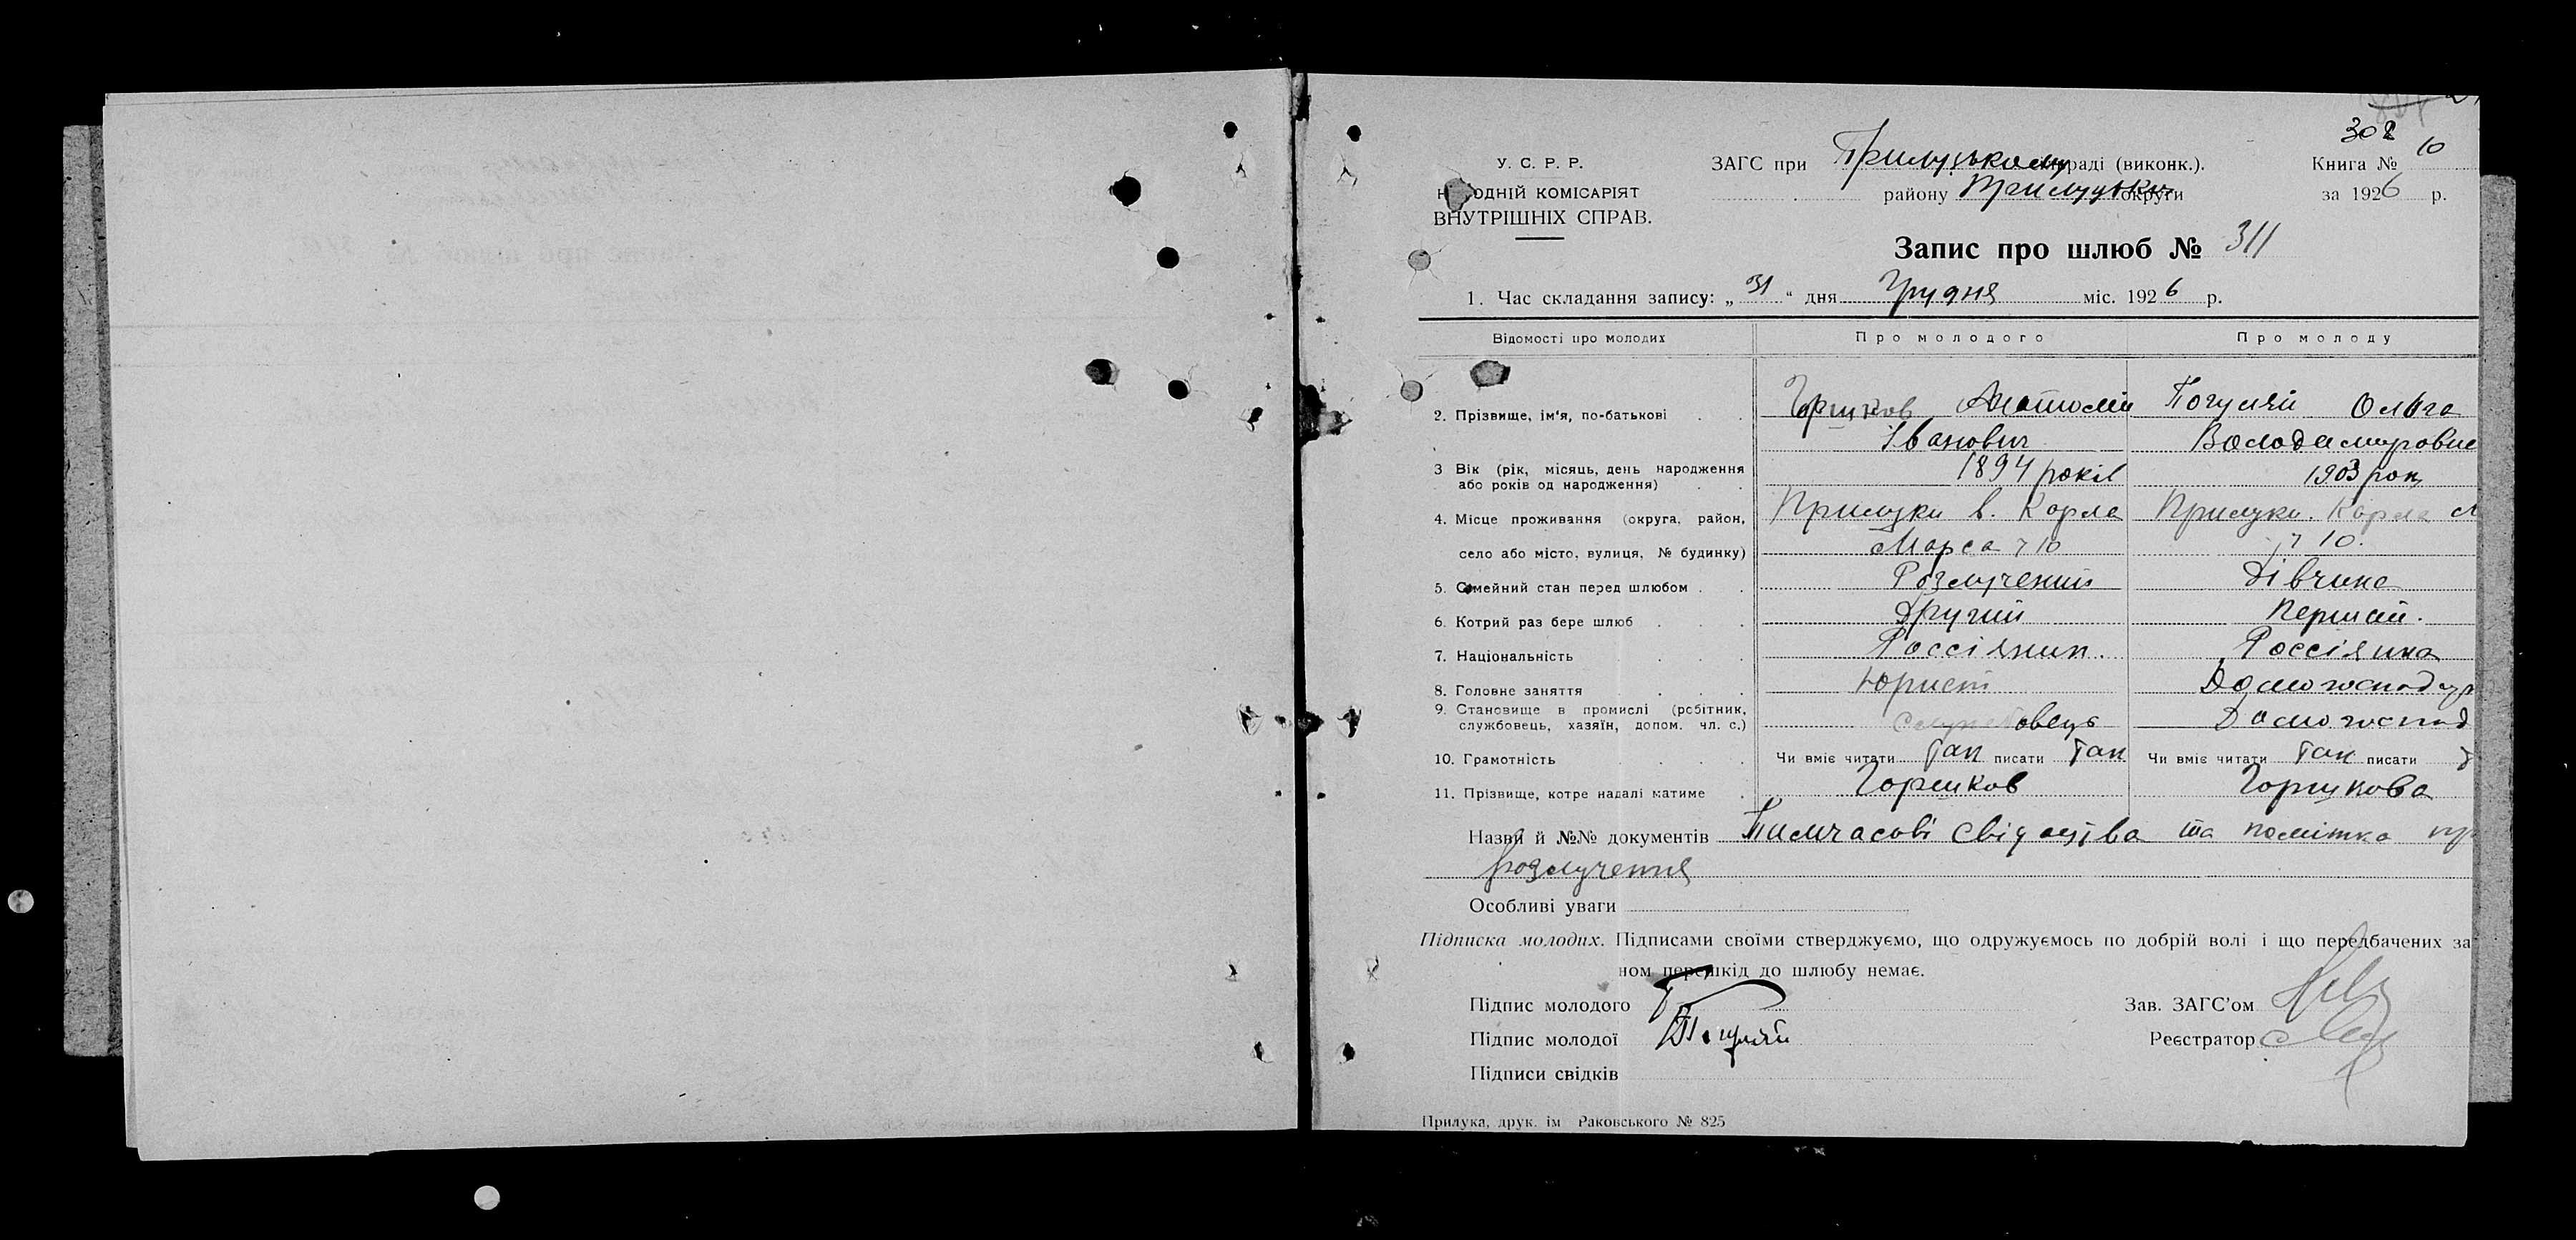 302
У. С. Р. Р. ЗАГС при Прилуцькому раді (виконк.). Книга № 10
НАРОДНІЙ КОМІСАРІЯТ району Прилуцьки округи за 1926 р.
ВНУТРІШНІХ СПРАВ.
Запис про шлюб № 311
1. Час складання запису: „31“ дня Грудня міс. 1926 р.
Відомості про молодих Про молодого Про молоду
2. Прізвище, ім'я, по-батькові Горшков Анатолій Погуляй Ольга
Іванович Володимировна
3 Вік (рік, місяць, день народження 1894 років 1903 рок
або років од народження)
4. Місце проживання (округа, район, Прилуки в. Карла Прилуки. Карла М
село або місто, вулиця, № будинку) Маркса ч 10 ч 10.
5. Сімейний стан перед шлюбом Розлучений Дівчина
6. Котрий раз бере шлюб Другий Перший.
7. Національність Россіянин. Россіянка
8. Головне заняття Юрист Домогосподар
9. Становище в промислі (робітник,
службовець, хазяїн, допом. чл. с.) Службовець Домогоспод
10. Грамотність Чи вміє читати Так писати Так Чи вміє читати Так писати Т
11. Прізвище, котре надалі матиме Горшков Горшкова
Назви й №№ документів Тимчасові свідоцтва та помітка пр
розлучення
Особливі уваги
Підписка молодих. Підписами своїми стверджуємо, що одружуємось по добрій волі і що передбачених за
ном перешкід до шлюбу немає.
Підпис молодого Зав. ЗАГС'ом
Підпис молодої Погуляй Реєстратор
Підписи свідків
Прилука, друк. ім Раковського № 825